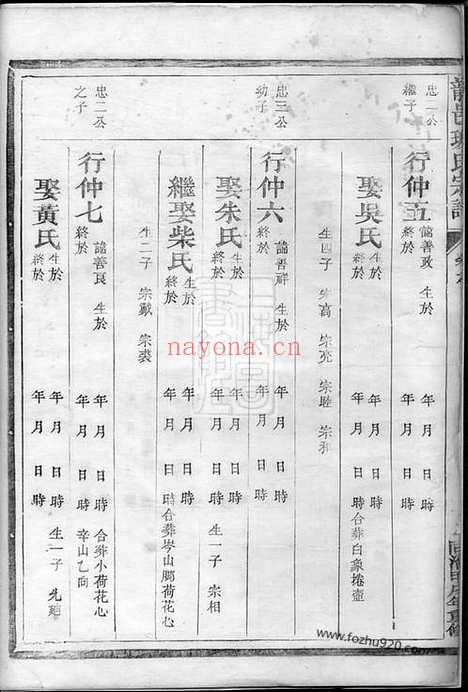 忠一公
繼子
行仲五
諡善政 生於 年 月 日 時
終於 年 月 日 時
娶吳氏
生於 年 月 日 時
終於 年 月 日 時合葬白象捲壺
生四子 宗高 宗亮 宗睦 宗和
忠三公
幼子
行仲六
諡善祥 生於 年 月 日 時
終於 年 月 日 時
娶朱氏
生於 年 月 日 時
終於 年 月 日 時 生一子 宗相
繼娶柴氏
生於 年 月 日 時
終於 年 月 日 時合葬岑山腳荷花心
生二子 宗戴 宗裘
忠二公
之子
行仲七
諡善良 生於 年 月 日 時 合葬小荷花心
終於 年 月 日 時 辛山乙向
娶黃氏
生於 年 月 日 時 生一子
終於 年 月 日 時
nayona.cn
www.fozhu920.com